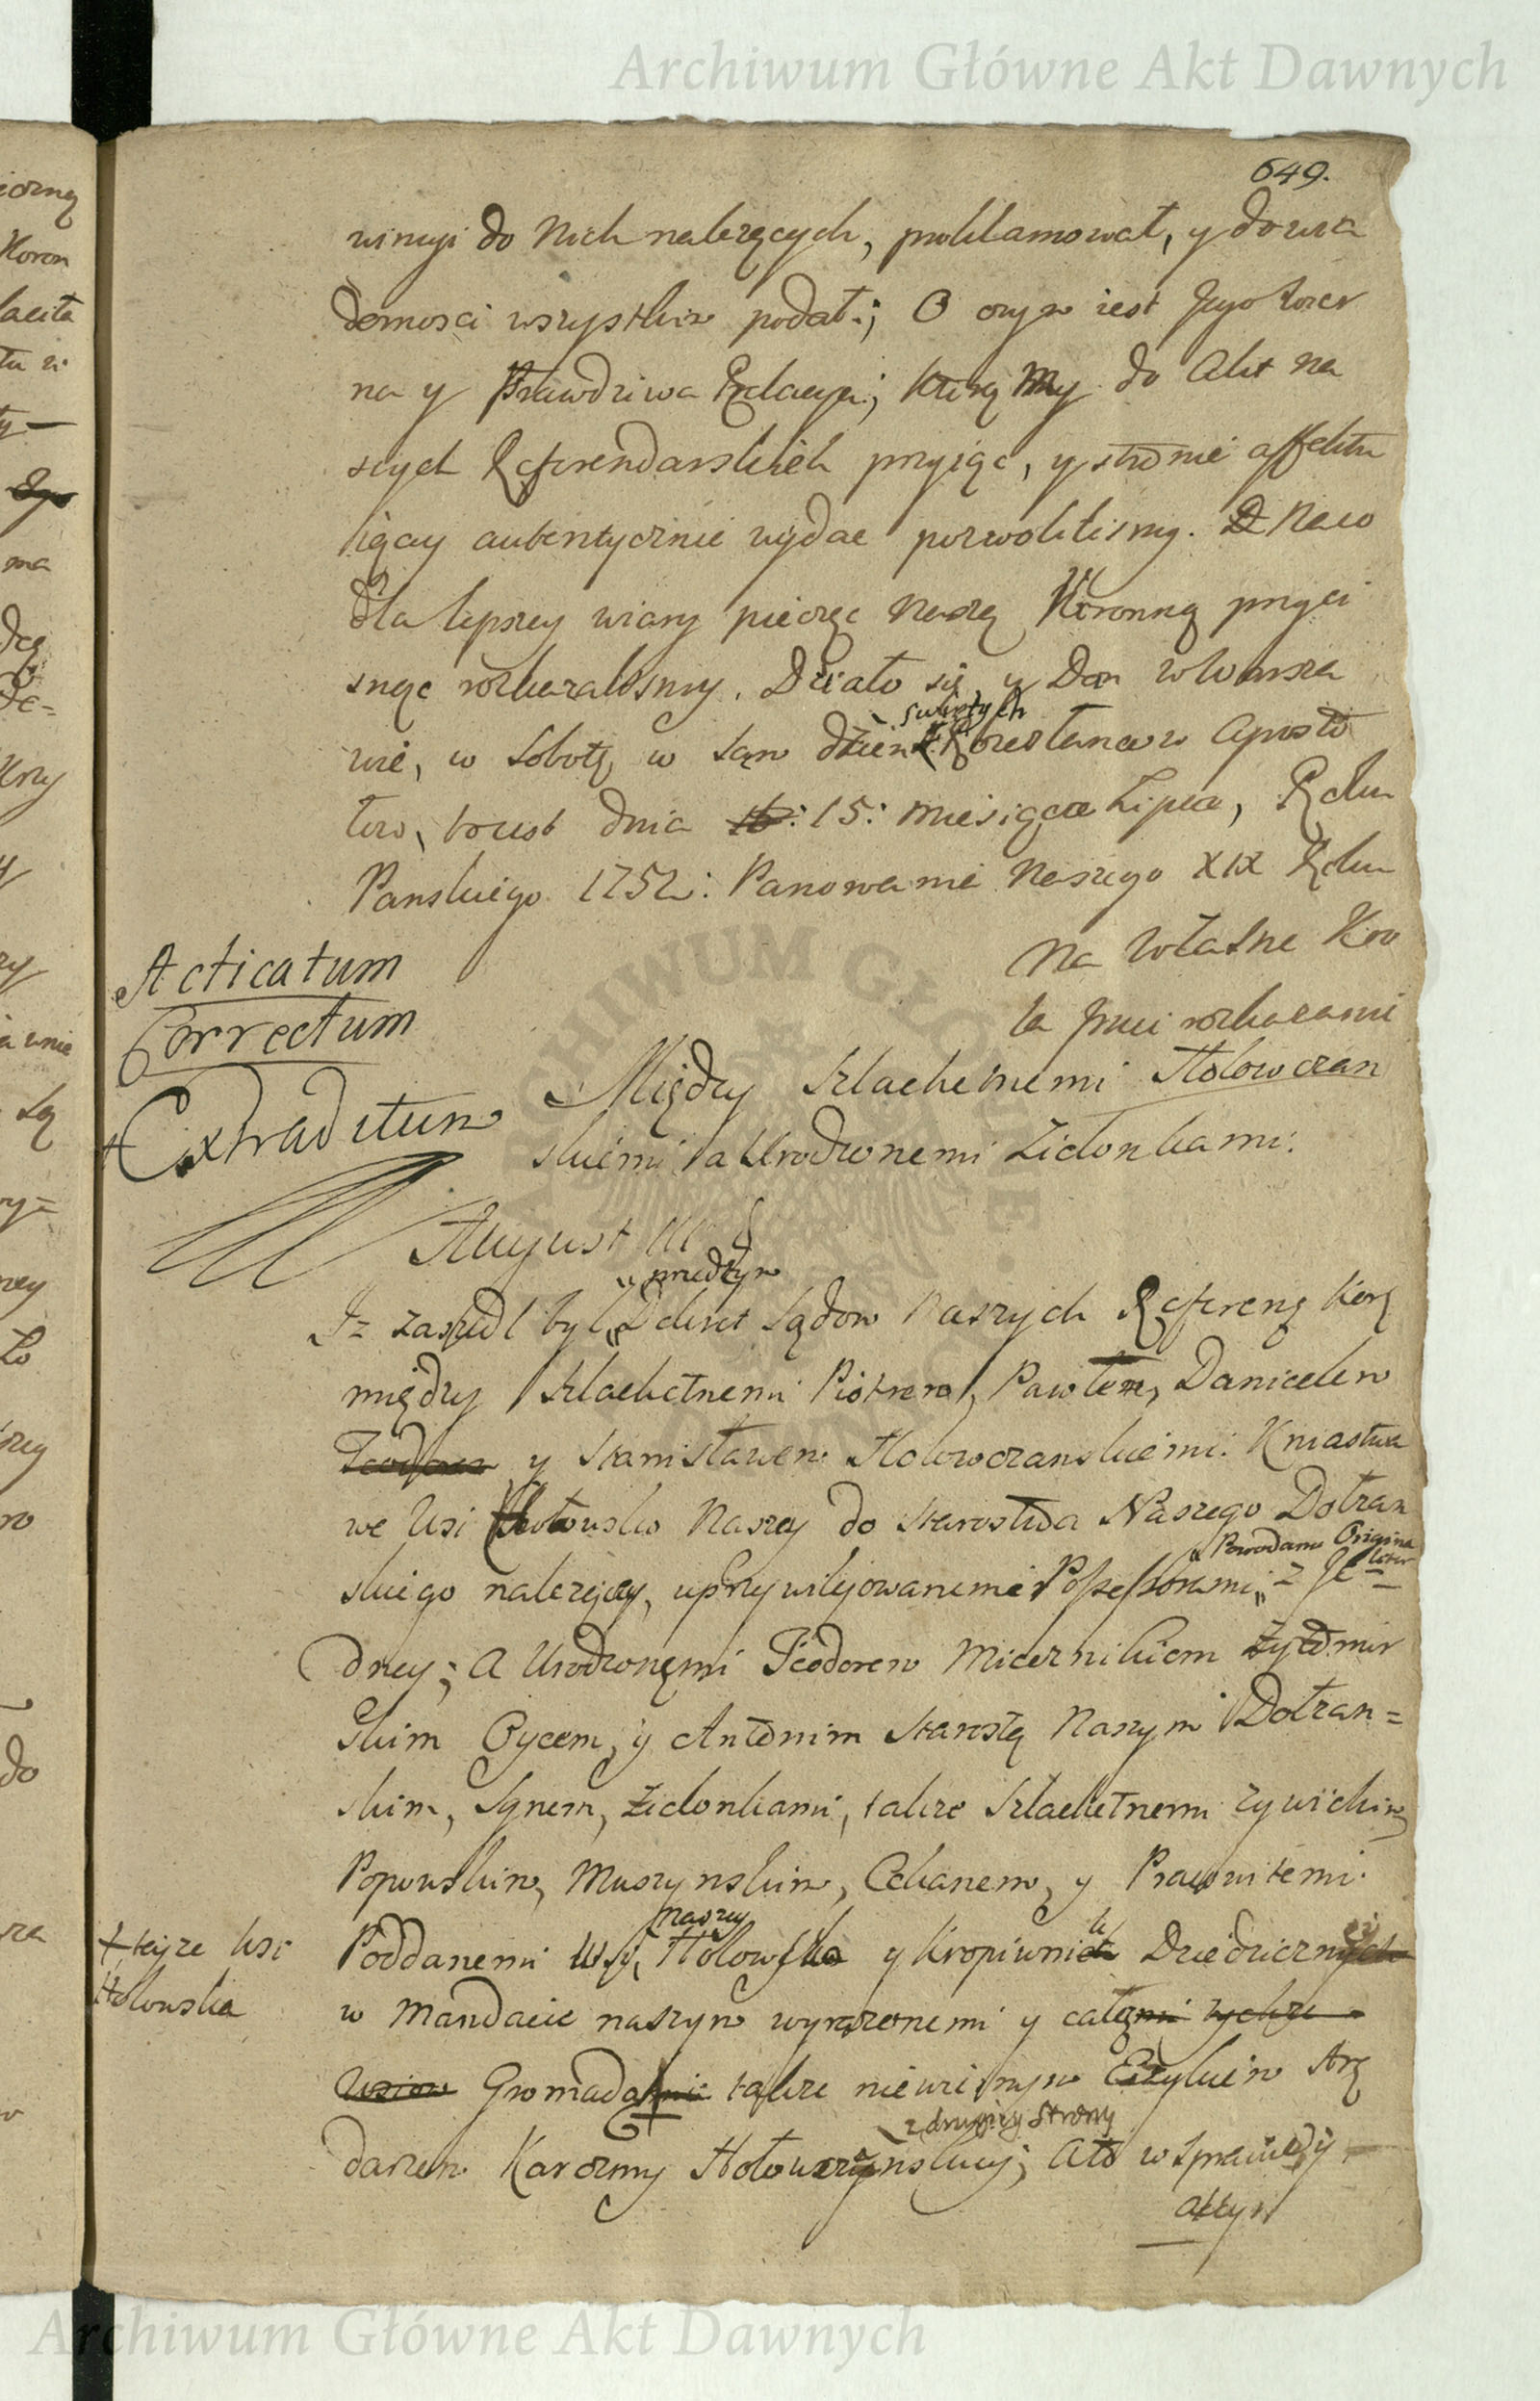 Archiwum Główne Akt Dawnych
649.
winuyi do Nich należących, proklamował, y do wia
domosci wszystkim podał; O czym iest Jego Zezr
na y Prawdziwa Relacya; Którą My do Akt na
szych Referendarskich przyiąć, y stronie affektu
iącey autentycznie wydać pozwoliliśmy. Na co
dla lepszey wiary pieczęć Naszą Koronną przyci
snąć rozkazaliśmy. Działo się y Dan w Warsza
wie, w Sobotę w Sam dzień świętych Rozesłancow Aposto
łow, to iest dnia 15: Miesiąca Lipca, Roku
Panskiego 1752: Panowania Naszego XIX Roku
Na Własne Kro
la Jmci rozkazanie
Acticatum
Correctum
Extraditum
Między Szlachetnemi Hołowczan
skiemi a Urodzonemi Zielonkami.
August III
Iż zaszedł był przedtym Dekret Sądow Naszych Referen: Kor:
między Szlachetnemi Piotrem, Pawłem, Danielem
Teodorem y Stanisławem Hołowczanskiemi: Kniastwa
we Wsi Hołowsko Naszey do Starostwa Naszego Dołzan
skiego należącey, uprzywilejowanemi Possessorami, Powodami z Je
dney; A Urodzonemi Teodorem Miecznikiem Żytomir
skim Oycem, y Antonim Starostą Naszym Dołzan=
skim, Synem, Zielonkami, także Szlachetnemi
Popowskim, Muszynskim, y Pracowitemi
Poddanemi Wsi naszey Hołowska y Kropiwnik Dziedzicznych
+ teyże Wsi
Hołowska
w Mandacie naszym wyrażonemi y całemi tychże
Wsiow Gromadami także niewiernym Ar
darzem Karczmy Hołowczynskiey, z drugiey Strony Ato w Sprawie y
Akcyi
Archiwum Główne Akt Dawnych